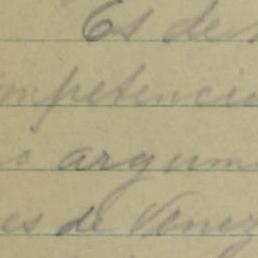 Es de
mpetencia
argum
es de Venez